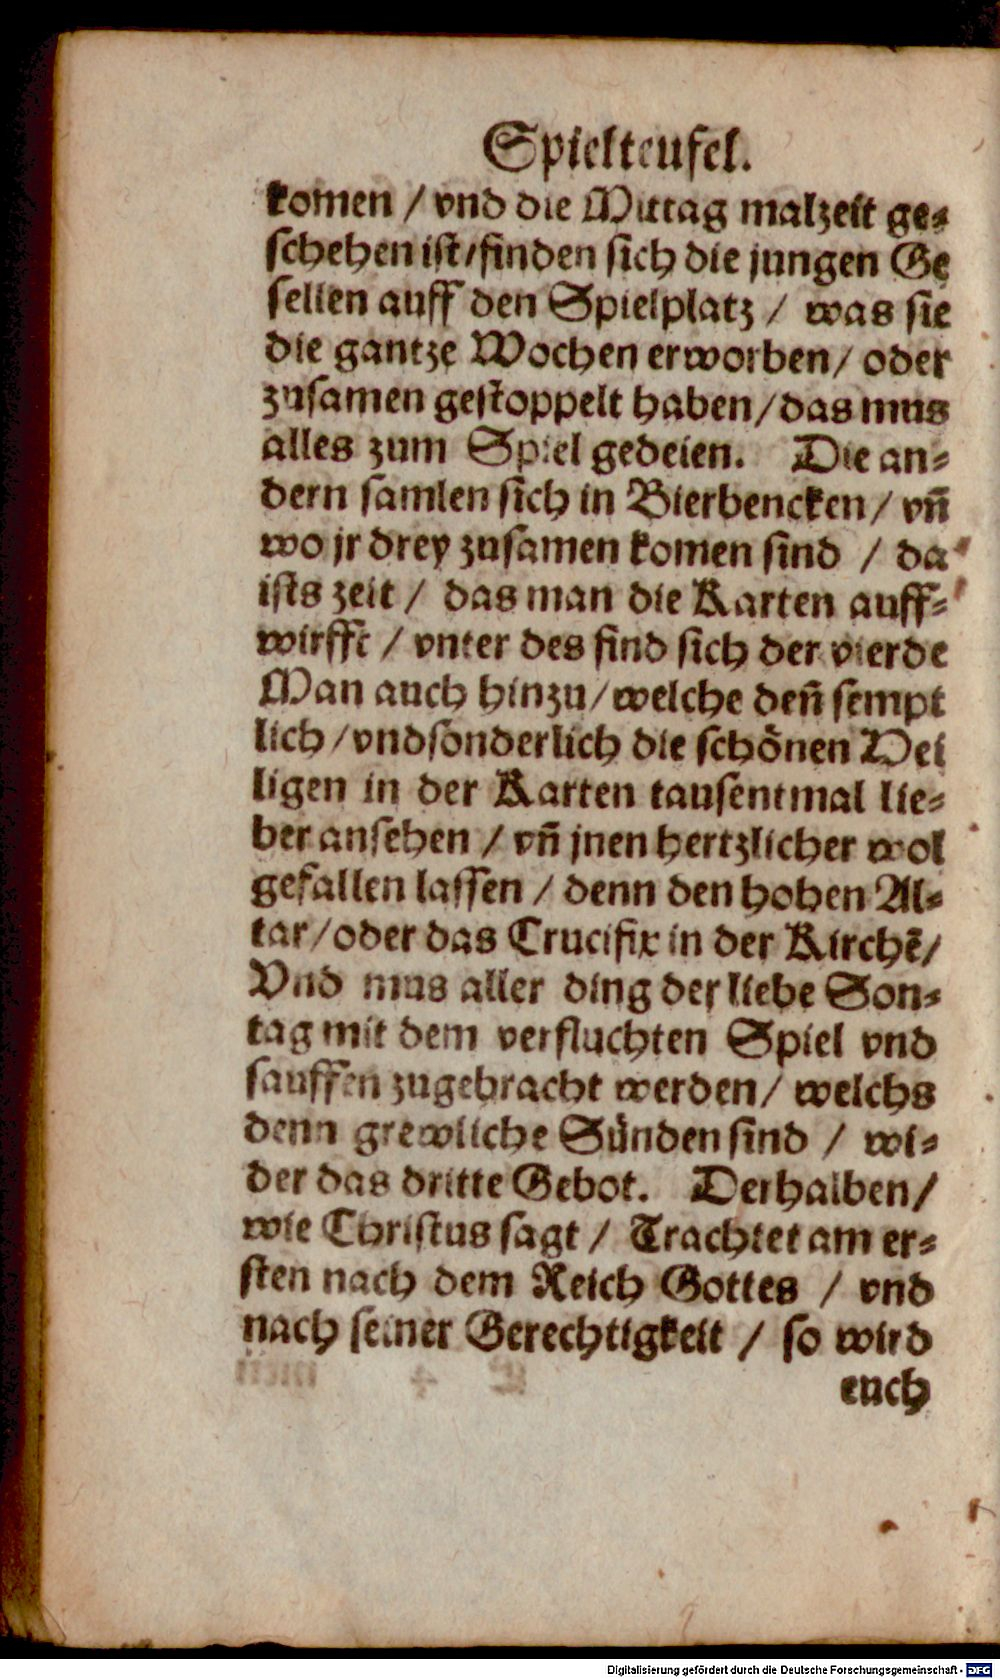 Spielteufel.
komen / vnd die Mittag malzeit ge-
schehen ist / finden sich die jungen Ge
sellen auff den Spielplatz / was sie
die gantze Wochen erworben / oder
zusamen gestoppelt haben / das mus
alles zum Spiel gedeien. Die an-
dern samlen sich in Bierbencken / vn̄
wo jr drey zusamen komen sind / da
ists zeit / das man die Karten auff-
wirfft / vnter des find sich der vierde
Man auch hinzu / welche den̄ sempt
lich / vndsonderlich die schönen Hei
ligen in der Karten tausentmal lie-
ber ansehen / vn̄ jnen hertzlicher wol
gefallen lassen / denn den hohen Al-
tar / oder das Crucifix in der Kirchē /
Vnd mus aller ding der liebe Son-
tag mit dem verfluchten Spiel vnd
sauffen zugebracht werden / welchs
denn grewliche Sünden sind / wi-
der das dritte Gebot. Derhalben /
wie Christus sagt / Trachtet am er-
sten nach dem Reich Gottes / vnd
nach seiner Gerechtigkeit / so wird
euch
Digitalisierung gefördert durch die Deutsche Forschungsgemeinschaft - DFG